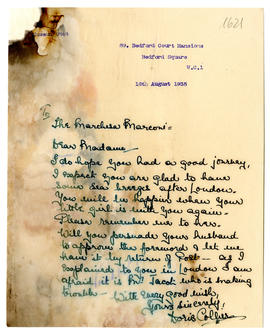 1621
89, Bedford Court Mansions
Bedford Square
W.C.1
16th August 1935
To
The Marchesa Marconi.
Dear Madame
I do hope you had a good journey,
I expect you are glad to have
some sea breezes after London.
You will be happier when your
little girl is with you again.
Please remember me to her.
Will you persuade your husband
to approve the foreword & let me
have it by return of Post — as I
explained to you in London I am
afraid it is Mr Jacot who is making
trouble — With every good wish,
Yours sincerely,
Doris